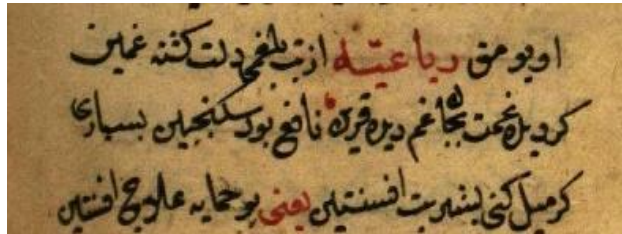 اویومق رباعیّه از تب بلغمی دلت کشته غمین
کردیده غمت بجان غم دیده قرین نافع بود سکنجبین بسیاری
کر میل کنی بشربت افسنتین یعنی بو حمایه علاج افسنتین